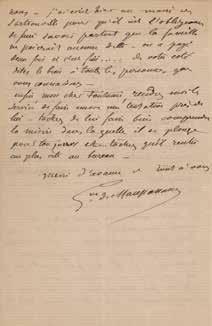 nous — j'ai écrit hier au maire
pour qu'il ait l'obligeance
de faire savoir partout que la famille
ne paierait aucune dette — on a payé
deux fois et c'est fini..... De votre côté
dites le bien à toutes les personnes que
vous connaissez —
enfin mon cher Fontaine, rendez moi le
service de faire encore une tentative près de
lui — tachez de lui faire bien comprendre
la misère dans laquelle il se plonge
pour toujours et tachez qu'il rentre
au plus vite au bureau —
merci d'avance et tout à vous
Gve de Maupassant